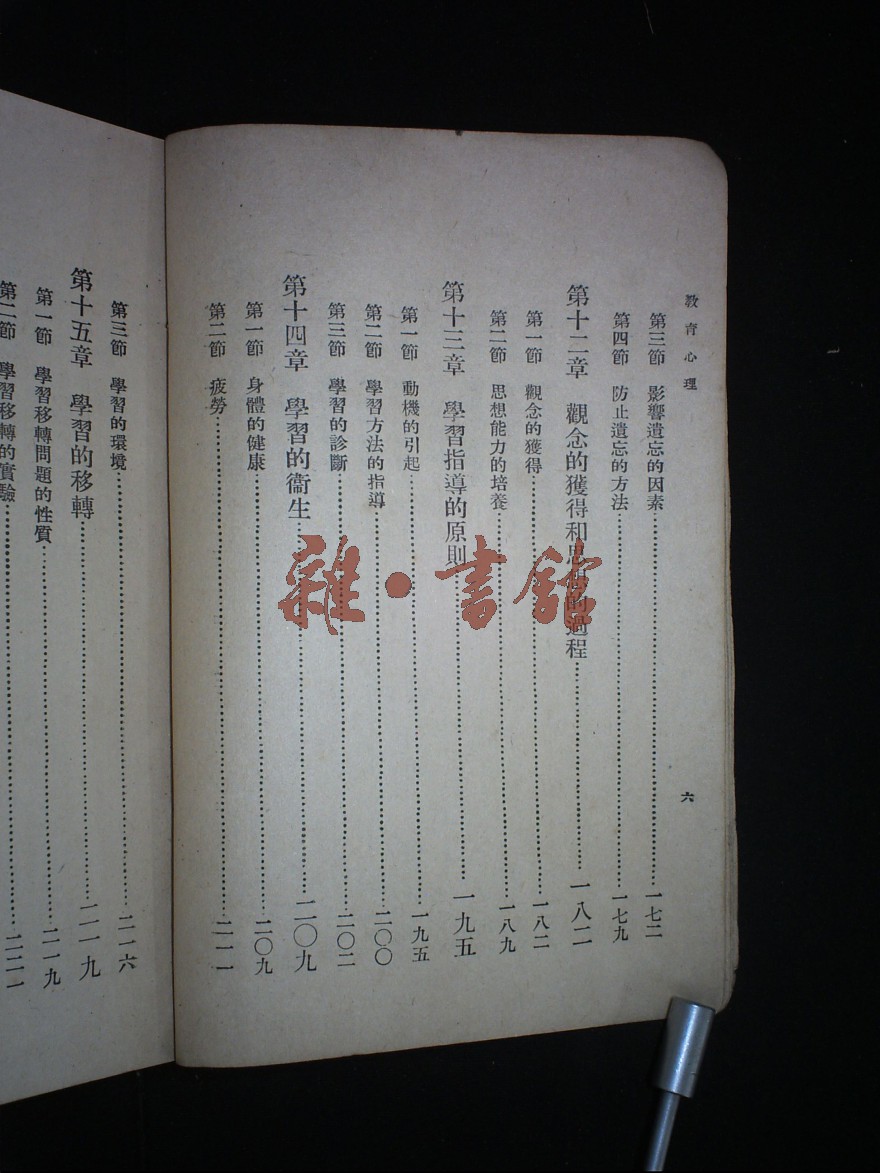 教育心理
六
第三節 影響遺忘的因素 一七二
第四節 防止遺忘的方法 一七九
第十二章 觀念的獲得和思想的過程 一八二
第一節 觀念的獲得 一八二
第二節 思想能力的培養 一八九
第十三章 學習指導的原則 一九五
第一節 動機的引起 一九五
第二節 學習方法的指導 二〇〇
第三節 學習的診斷 二〇二
第十四章 學習的衞生 二〇九
第一節 身體的健康 二〇九
第二節 疲勞 二一一
第三節 學習的環境 二一六
第十五章 學習的移轉 二一九
第一節 學習移轉問題的性質 二一九
第二節 學習移轉的實驗 二二一
雜·書館